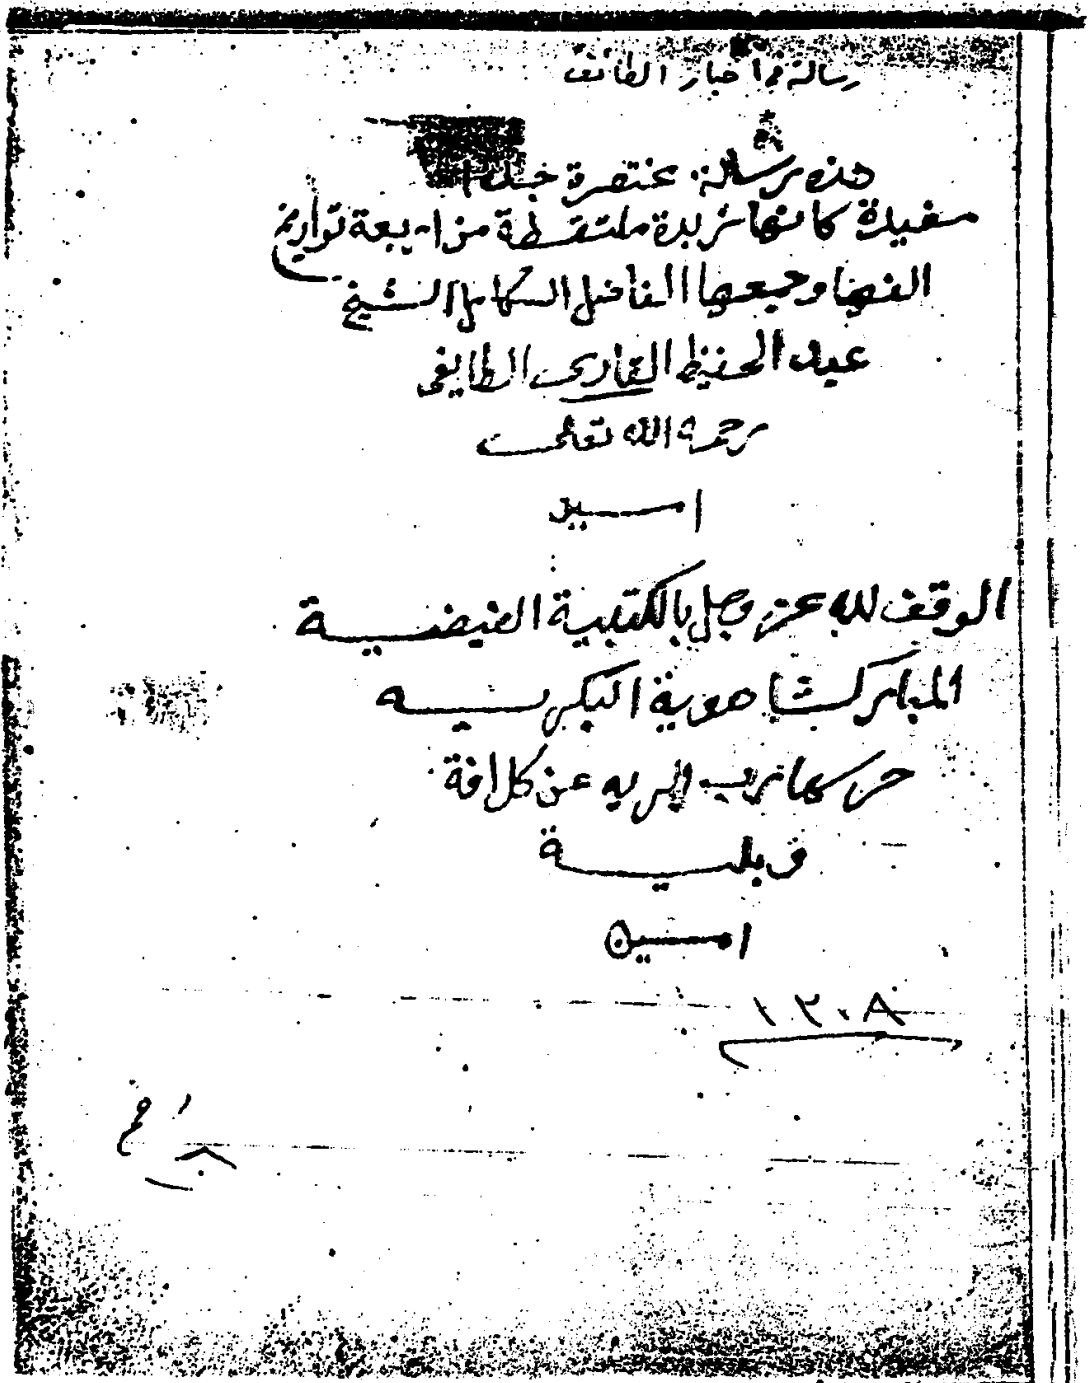 رسالة في أخبار الطائف
هذه رسالة مختصرة جدا
مفيدة كانها زبدة ملتقطة من اربعة تواريخ
الفها وجمعها الفاضل الكامل الشيخ
عبد الحفيظ القارى الطايفى
رحمه الله تعالى
امين
الوقف لله عز وجل بالكتبية الفيضية
المباركشاهوية البكريه
حرسها رب البريه عن كل افة
وبلية
امين
١٣٠٨